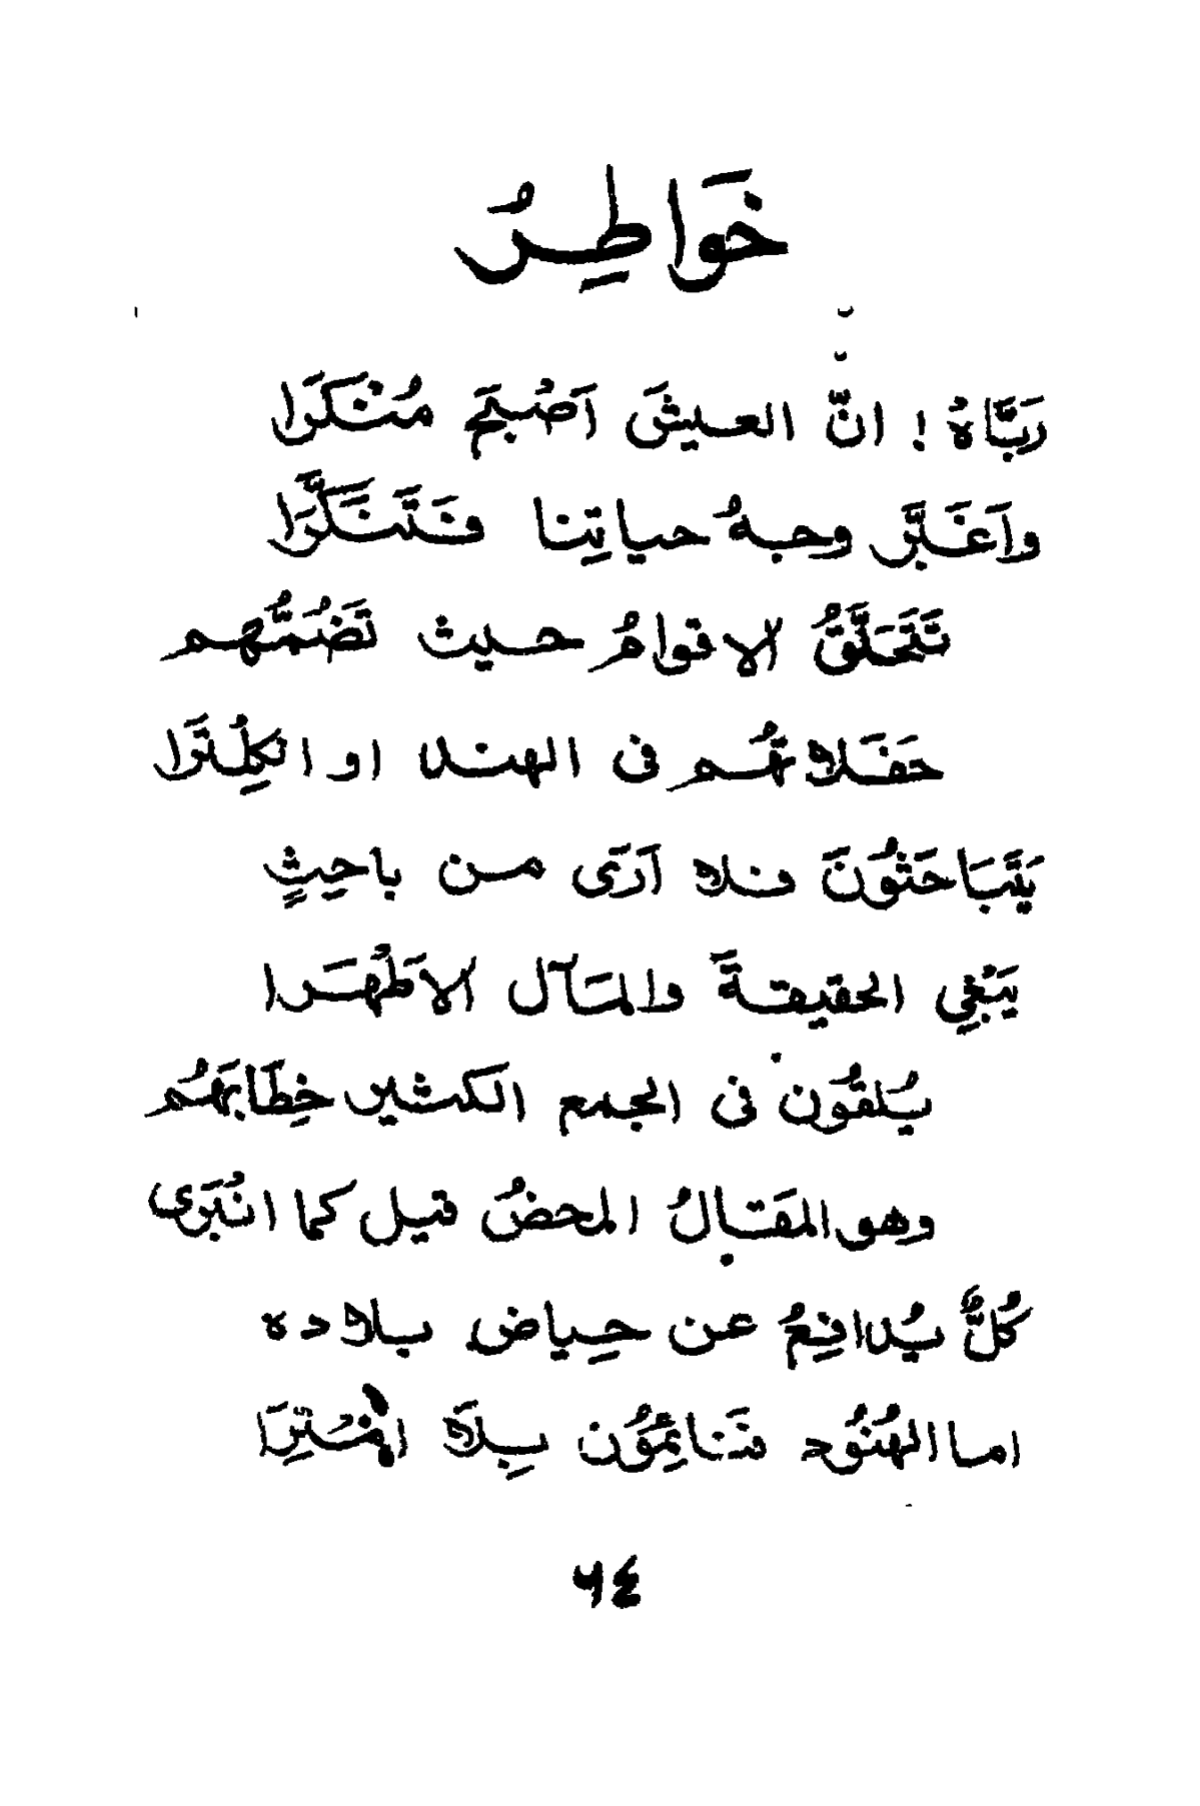 خَوَاطِرُ
رَبَّاهُ ! انّ العيشَ اَصْبَحَ مُنْكَرَا
واَغبَّر وجهُ حياتِنا فَتَنَكَّرَا
تَتَحَلَّقُ الاقوامُ حيث تَضُمُّهم
حَفَلاتُهُم فى الهند او انكِلْتَرَا
يَتَبَاحَثُونَ فلا اَرَى من باحِثٍ
يَبْغِي الحقيقةَ والمَآل الاَطْهَرا
يُلقُون فى الجمع الكثير خِطَابَهُم
وهو المقَالُ المحضُ قيل كما انْبَرى
كُلٌّ يُدافِعُ عن حِياض بلاده
اما الهُنُود فَنائِمُوُن بِلاَ امْتِرَا
٦٤